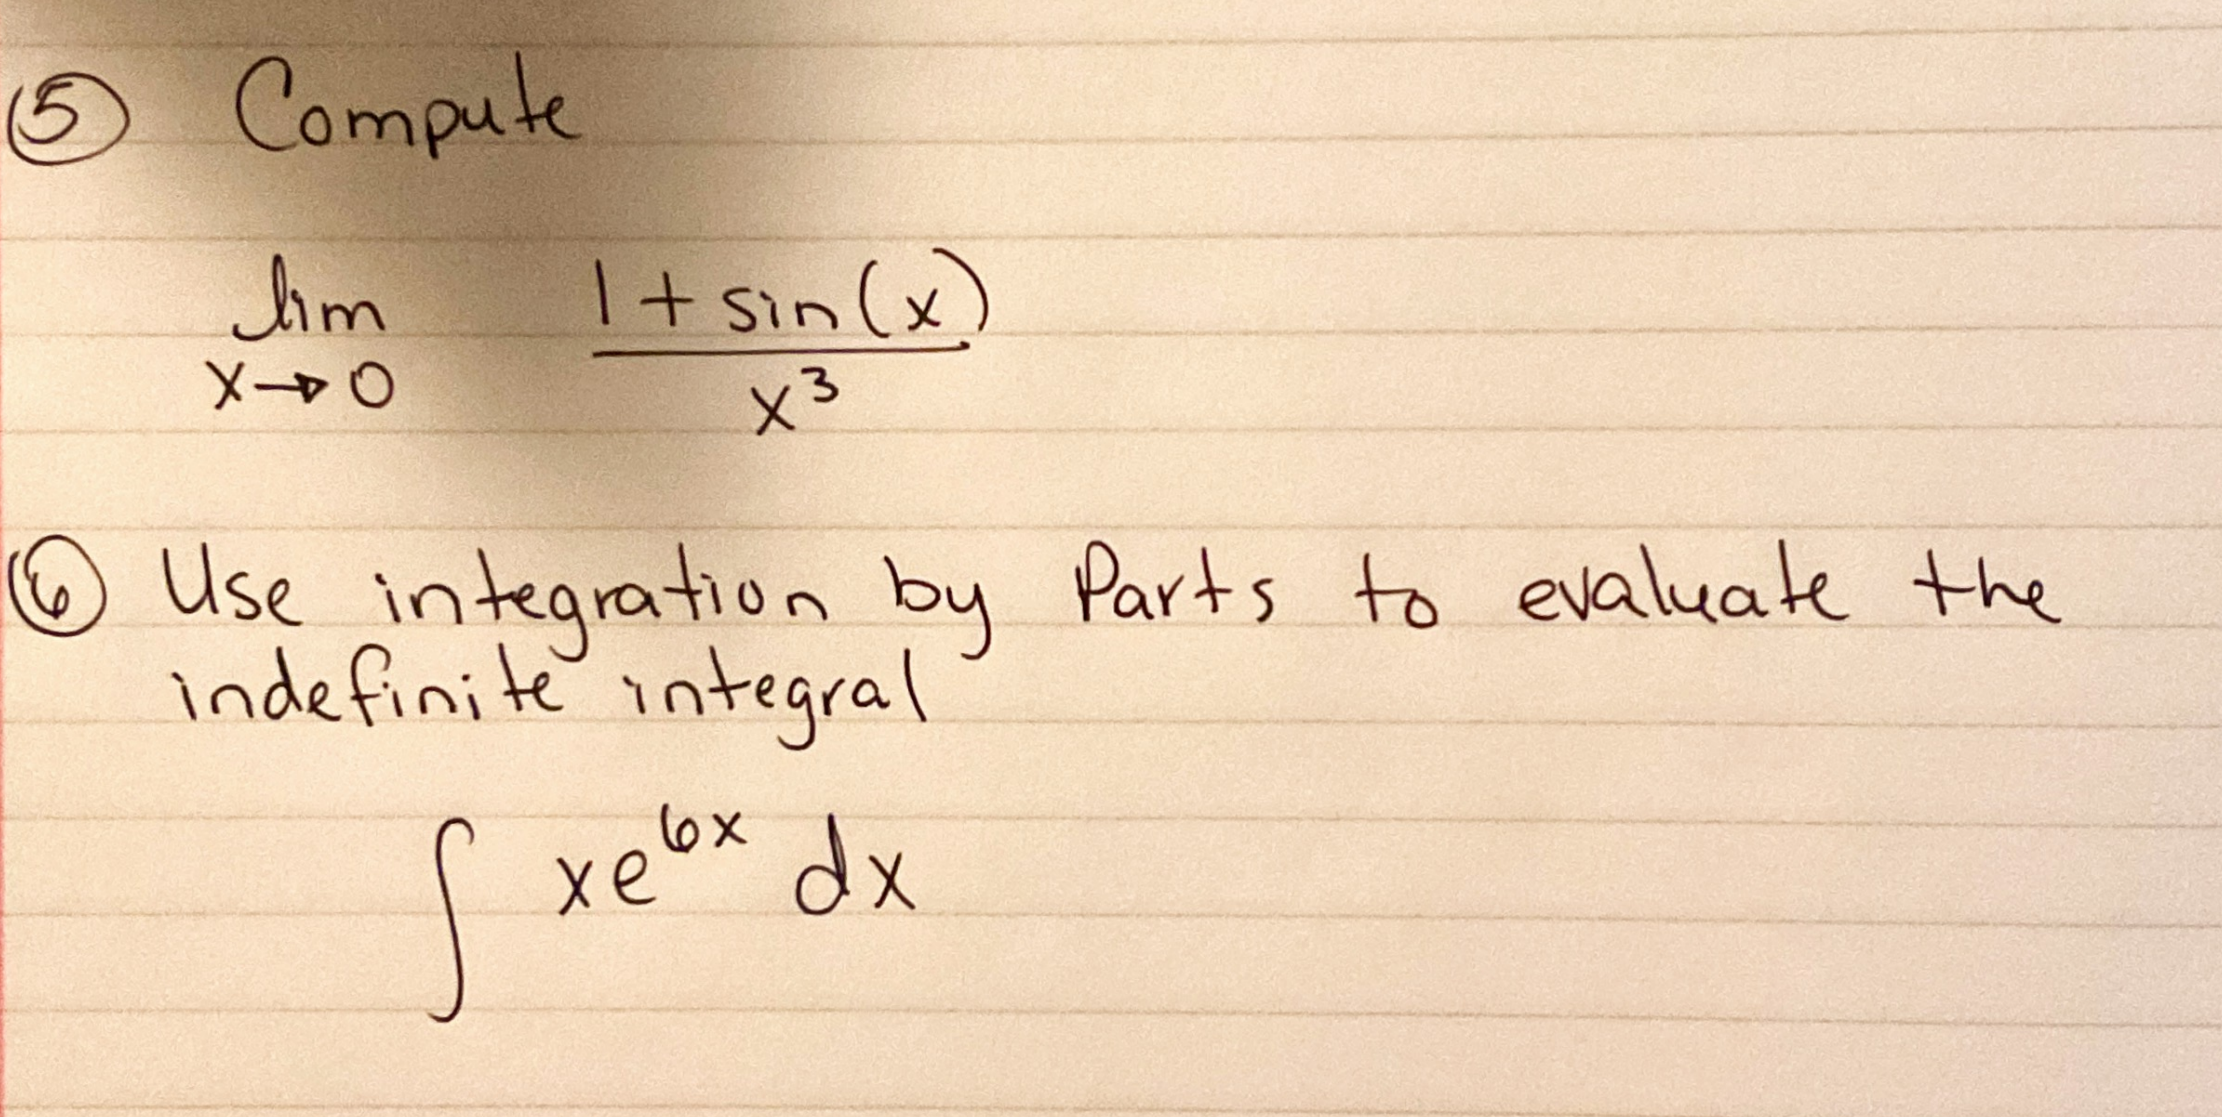 ⑤ Compute
lim 1 + sin(x)
x→0 x³
⑥ Use integration by Parts to evaluate the
indefinite integral
∫ xe⁶ˣ dx